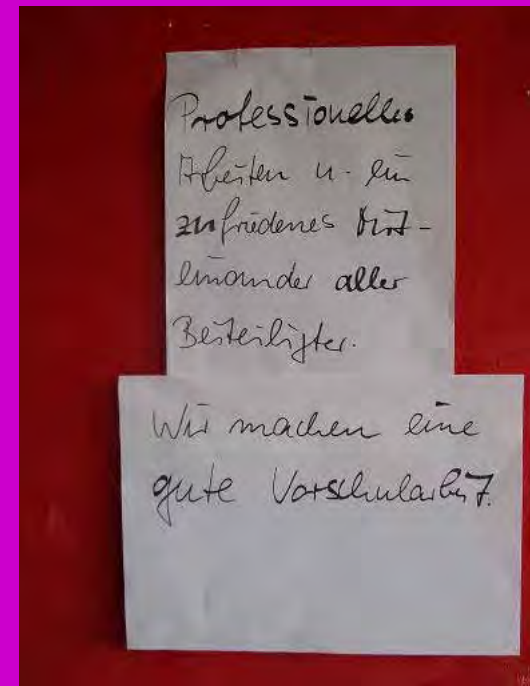 Professionelles
Arbeiten u. ein
zufriedenes Mit-
einander aller
Beiteiligter.
Wir machen eine
gute Vorschularbeit.